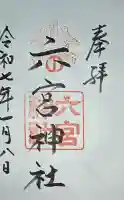 奉拝
六宮神社
六宮
令和七年一月八日